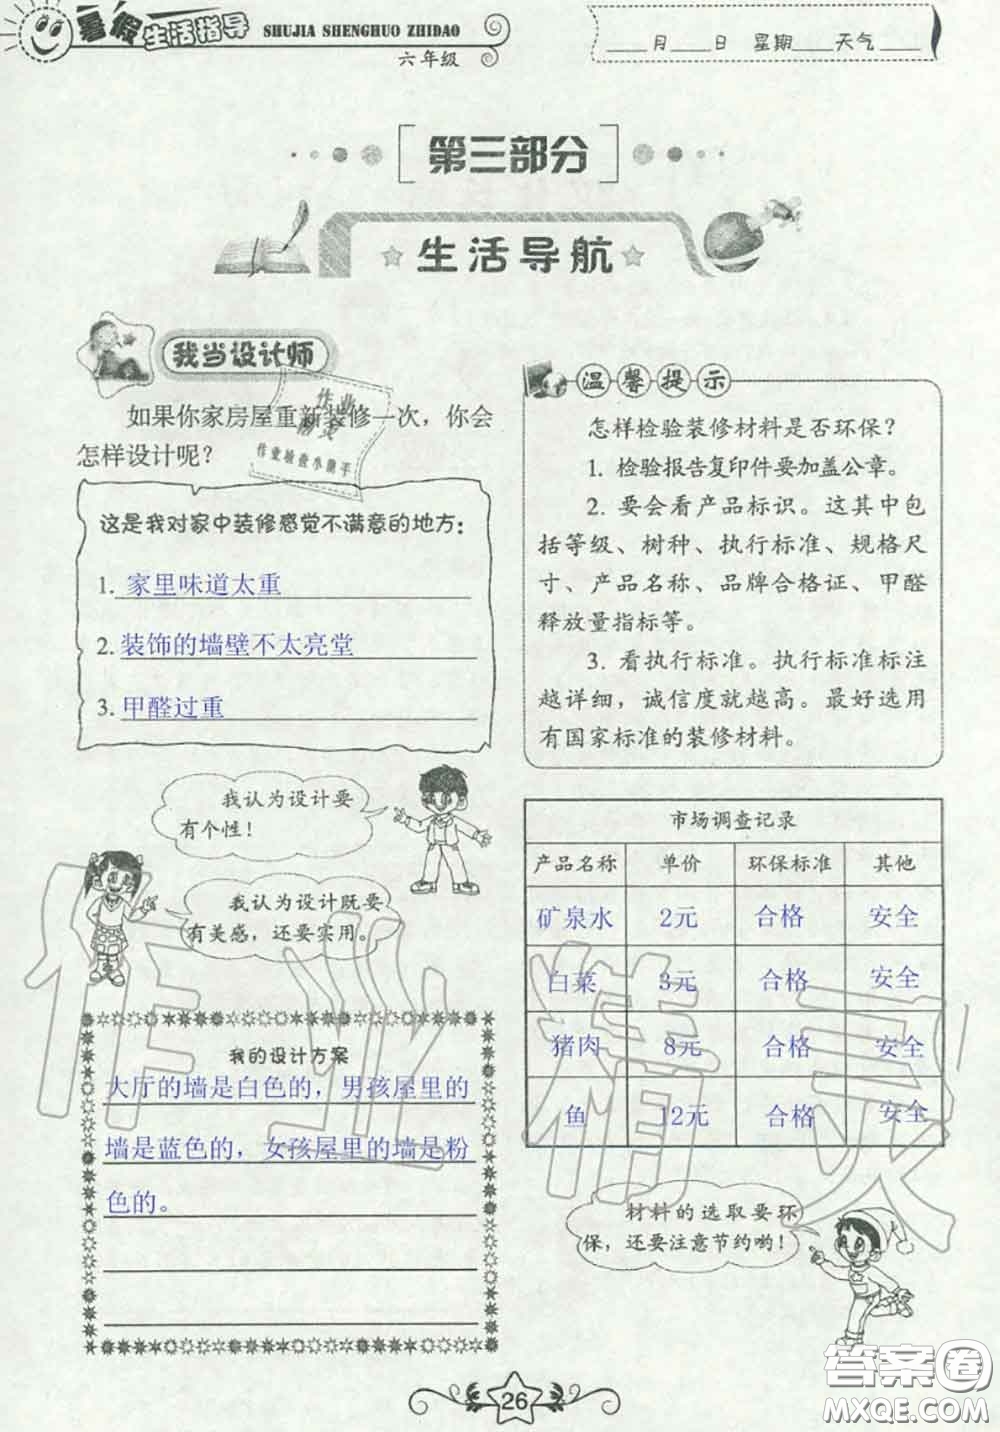 暑假生活指导
SHUJIA SHENGHUO ZHIDAO
六年级
____月____日 星期____天气____
第三部分
生活导航
我当设计师
如果你家房屋重新装修一次，你会
怎样设计呢？
作业
精灵
作业检查小助手
这是我对家中装修感觉不满意的地方：
1. 家里味道太重
2. 装饰的墙壁不太亮堂
3. 甲醛过重
我认为设计要
有个性！
我认为设计既要
有美感，还要实用。
我的设计方案
大厅的墙是白色的，男孩屋里的
墙是蓝色的，女孩屋里的墙是粉
色的。
温馨提示
怎样检验装修材料是否环保？
1. 检验报告复印件要加盖公章。
2. 要会看产品标识。这其中包
括等级、树种、执行标准、规格尺
寸、产品名称、品牌合格证、甲醛
释放量指标等。
3. 看执行标准。执行标准标注
越详细，诚信度就越高。最好选用
有国家标准的装修材料。
市场调查记录
产品名称 单价 环保标准 其他
矿泉水 2元 合格 安全
白菜 3元 合格 安全
猪肉 8元 合格 安全
鱼 12元 合格 安全
材料的选取要环
保，还要注意节约哟！
作业精灵
26
答案圈
MXQE.COM